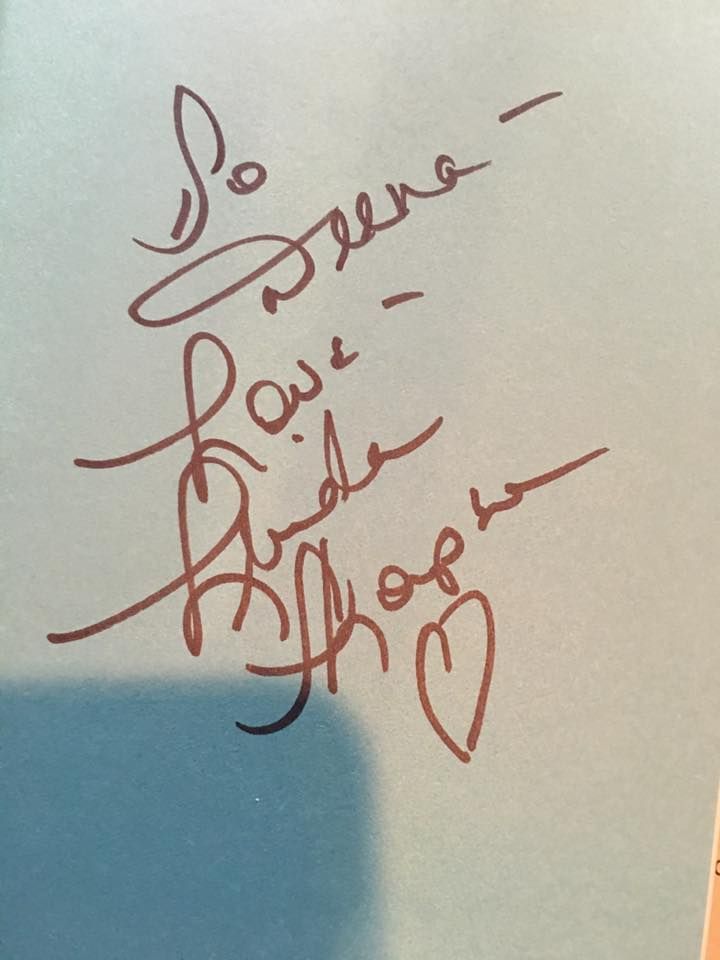 To
Deena -
Love -
Linda
Thompson